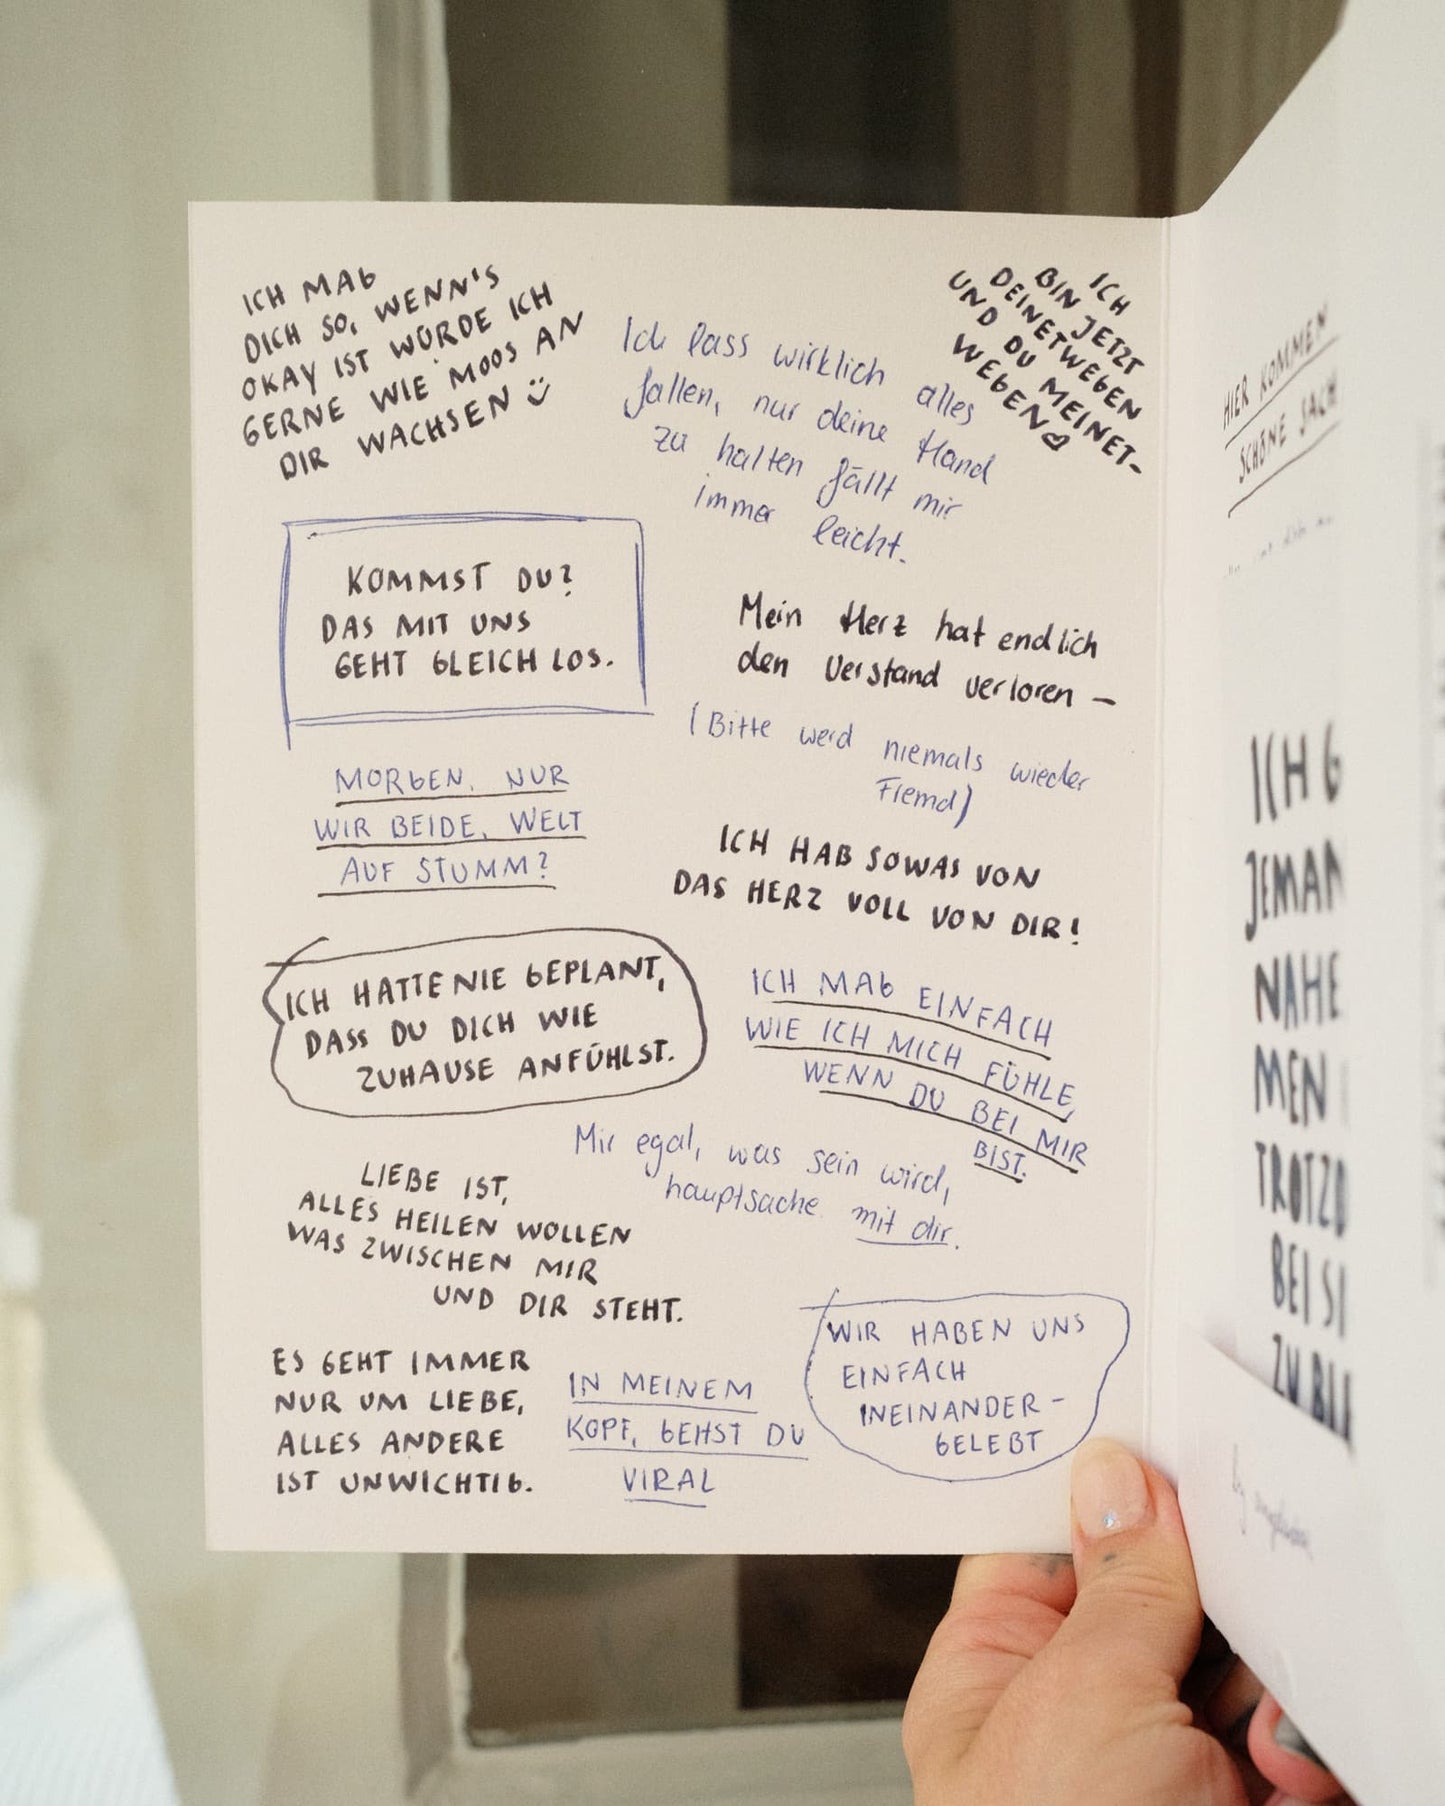 ICH MAG
DICH SO, WENN'S
OKAY IST WÜRDE ICH
GERNE WIE MOOS AN
DIR WACHSEN
Ich lass wirklich alles
fallen, nur deine Hand
zu halten fällt mir
immer leicht.
ICH
BIN JETZT
DEINETWEGEN
UND DU MEINET-
WEGEN
KOMMST DU?
DAS MIT UNS
GEHT GLEICH LOS.
Mein Herz hat endlich
den Verstand verloren –
(Bitte werd niemals wieder
Fremd)
MORGEN, NUR
WIR BEIDE, WELT
AUF STUMM?
ICH HAB SOWAS VON
DAS HERZ VOLL VON DIR!
ICH HATTE NIE GEPLANT,
DASS DU DICH WIE
ZUHAUSE ANFÜHLST.
ICH MAG EINFACH
WIE ICH MICH FÜHLE,
WENN DU BEI MIR
BIST.
Mir egal, was sein wird,
hauptsache mit dir.
LIEBE IST,
ALLES HEILEN WOLLEN
WAS ZWISCHEN MIR
UND DIR STEHT.
ES GEHT IMMER
NUR UM LIEBE,
ALLES ANDERE
IST UNWICHTIG.
IN MEINEM
KOPF, GEHST DU
VIRAL
WIR HABEN UNS
EINFACH
INEINANDER-
GELEBT
HIER KOMMEN
SCHÖNE SACH
ICH G
JEMAN
NAHE
MEN
TROTZD
BEI SI
ZU BLE
by